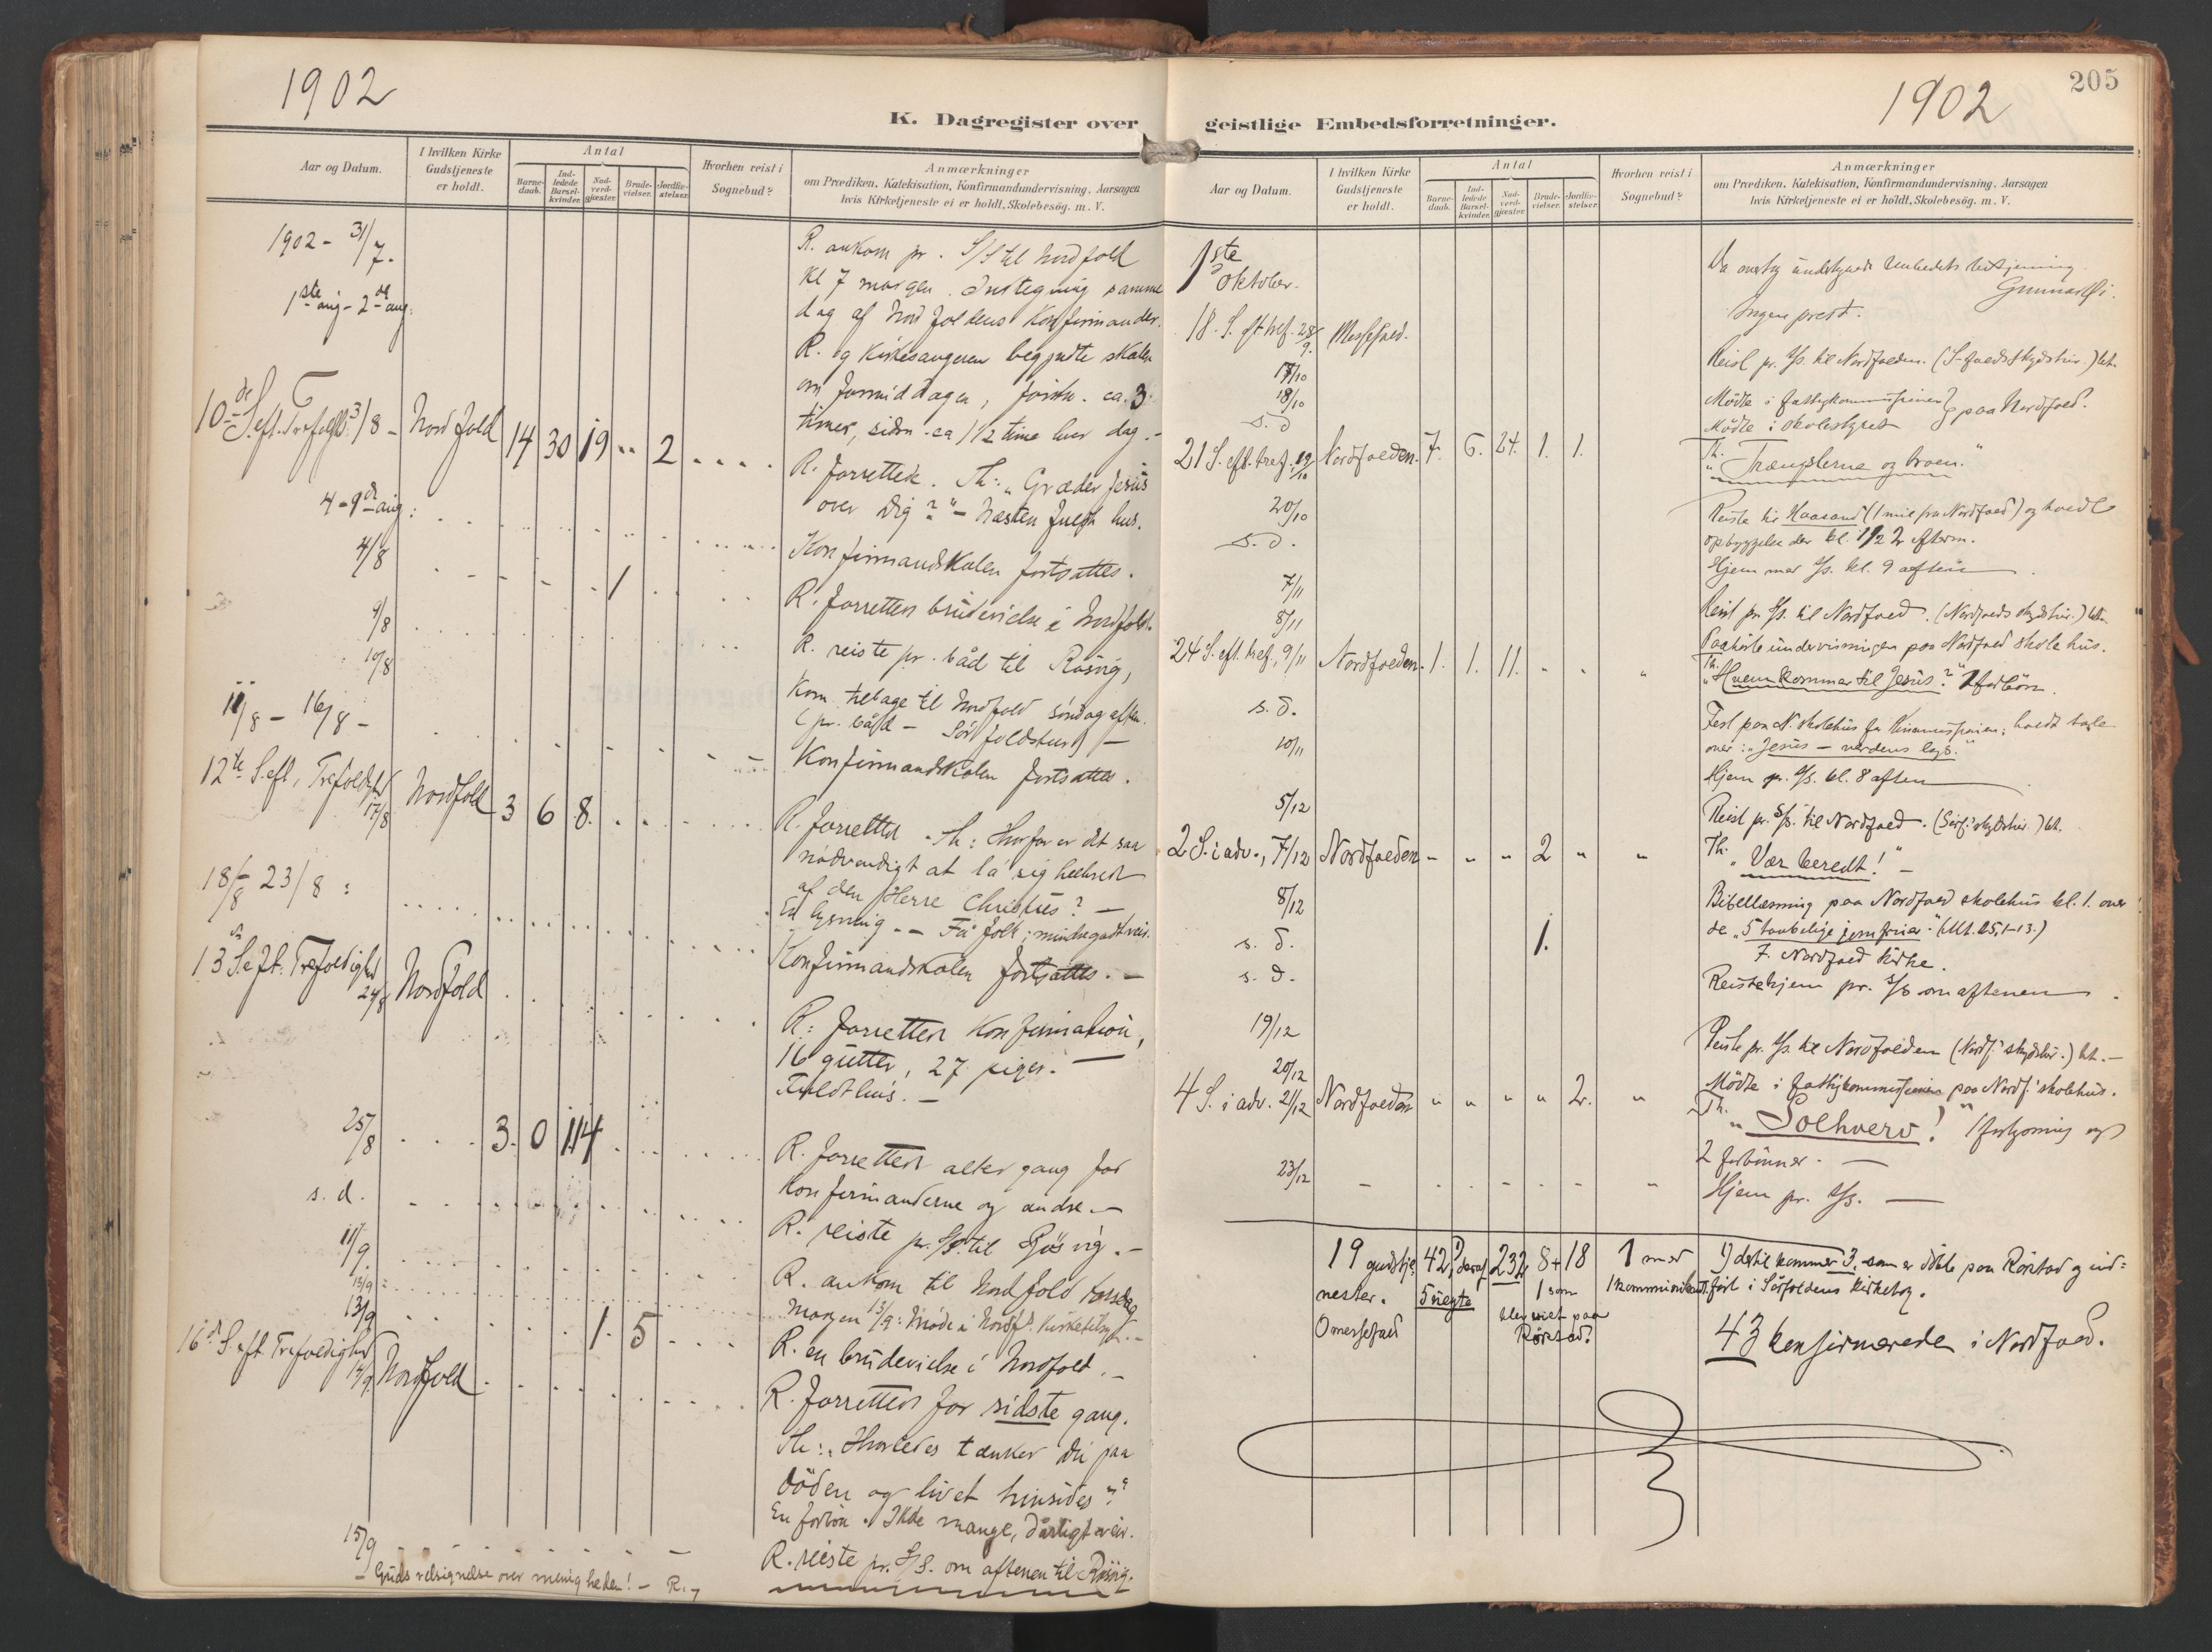 1902
K. Dagregister over
Aar og Datum.
I hvilken Kirke Gudstjeneste er holdt.
Antal
Barne-daab.
Ind-ledede Barsel-kvinder.
Nad-verd-gjæster.
Brude-vielser.
Jordfæ-stelser.
Hvorhen reist i Sognebud?
Anmærkninger
om Prædiken, Katekisation, Konfirmandundervisning, Aarsagen
hvis Kirketjeneste ei er holdt, Skolebesög. m. V.
1902 - 31/7.
R. ankom pr. S/S til Nordfold
Kl 7 morgen. Indtegning samme
dag af Nordfoldens Konfirmander.
1ste aug - 2de aug:
R. og Kirkesangeren begyndte skolen
om formiddagen, forsk. ca. 3
timer, siden ca 1 1/2 time hver dag. -
10de S. eft. Trefoldgh. 3/8 - Nordfold 14 30 19 " 2
R. forrettede. Th: "Græder Jesus
over Dig?" - Næsten fuldt hus.
4 - 9de aug:
Konfirmandskolen fortsattes.
4/8 1
R. forrettede brudevielse i Nordfold.
9/8
R. reiste pr. båd til Rösvig,
10/8
Kom tilbage til Nordfold söndag aften
(pr. båd - Sörfoldsturd) -
11/8 - 16/8 -
Konfirmandskolen fortsattes.
12te S. eft. Trefoldgh 17/8 Nordfold 3 6 8.
R. forrettede. Th: Hvorfor er det saa
nödvendigt at la' sig helbrede
af den Herre Christus? -
En lysning. - Få folk; mindre godt veir.
18/8 - 23/8 :
Konfirmandskolen fortsattes. -
13de S. eft. Trefoldighd 24/8 Nordfold
R: forrettede Konfirmation,
16 gutter, 27 piger. -
Fuldt hus. -
25/8 3. 0 114
R. forrettede altergang for
Konfirmanderne og andre. -
s. d.
R. reiste pr. S/S. til Rösvig. -
11/9.
R. ankom til Nordfold torsdag
13/9:
morgen 13/9: Möde i Nordf. Kirketilsyn. -
13/9 1. 5
R. en brudevielse i Nordfold. -
16de S. eft Trefoldighd 14/9 Nordfold
R. forrettede for sidste gang.
Th: "Hvorledes tænker du paa
döden og livet hinsides?"
En forbön. Ikke mange, dårligt veir.
15/9
R. reiste pr. S/S. om aftenen til Rösvig.
- Guds velsignelse over menigheden! - R. -
205
1902
geistlige Embedsforretninger.
Aar og Datum.
I hvilken Kirke Gudstjeneste er holdt.
Antal
Barne-daab.
Ind-ledede Barsel-kvinder.
Nad-verd-gjæster.
Brude-vielser.
Jordfæ-stelser.
Hvorhen reist i Sognebud?
Anmærkninger
om Prædiken, Katekisation, Konfirmandundervisning, Aarsagen
hvis Kirketjeneste ei er holdt, Skolebesög. m. V.
1ste Oktober.
Da overtog undertegnede embedets betjening
18. S. eft tref. 28/9. Messefald.
Ingen prest.
17/10
Reist pr. S/S. til Nordfolden. (S-folds Skydstur.)
18/10
Mödte i fattigkommissionen
s. d
Mödte i skolestyret } paa Nordfold.
21 S. eft. tref. 19/10 Nordfolden. 7. 6. 24. 1. 1.
Th. "Trængslerne og troen."
20/10
Reiste til Haasand (1 mil fra Nordfold) og holdt
opbyggelse der kl. 1/2 2 efterm.
s. d.
Hjem med S/S. kl. 9 aften
7/11
Reist pr. S/S. til Nordfold. (Nordfolds skydstur.)
8/11
Paahörte undervisningen paa Nordfold skolehus.
24 S. eft. tref. 9/11 Nordfolden. 1. 1. 11. " " "
Th. "Hvem kommer til Jesus?" 1 forbön.
s. d.
Fest paa N. skolehus for Kinamissionen; holdt tale
over: "Jesus - verdens lys."
10/11
Hjem pr. S/S. kl. 8 aften
5/12
Reist pr. S/S. til Nordfold. (Sörf.' skydstur.)
2 S. i adv., 7/12 Nordfolden " " " 2 " "
Th. "Vær beredt!" -
8/12
Bibellæsning paa Nordfold skolehus kl. 1. over
de "5 taabelige jomfruer" (Mt. 25, 1-13.)
s. d. 1.
F. Nordfold kirke.
s. d.
Reiste hjem pr. S/S om aftenen
19/12
Reiste pr. S/S. til Nordfolden (Nordf.' skydstur.)
20/12
Mödte i fattigkommissionen paa Nordf.' skolehus.
4 S. i adv. 21/12 Nordfolden " " " " 2. "
Th. "Solhverv!" 1 forlysning og
2 forbönner. -
23/12
Hjem pr. S/S. -
19 gudstje-
nester.
0 messefald
42, 1) deraf
5 uegte
232 8 + 18
1 som
blev viet paa
Rörstad.
1 med
1 kommunikant.
1) dertil kommer 3, som er döbte paa Rörstad og ind-
fört i Sörfoldens kirkebog.
43 konfirmerede i Nordfold.